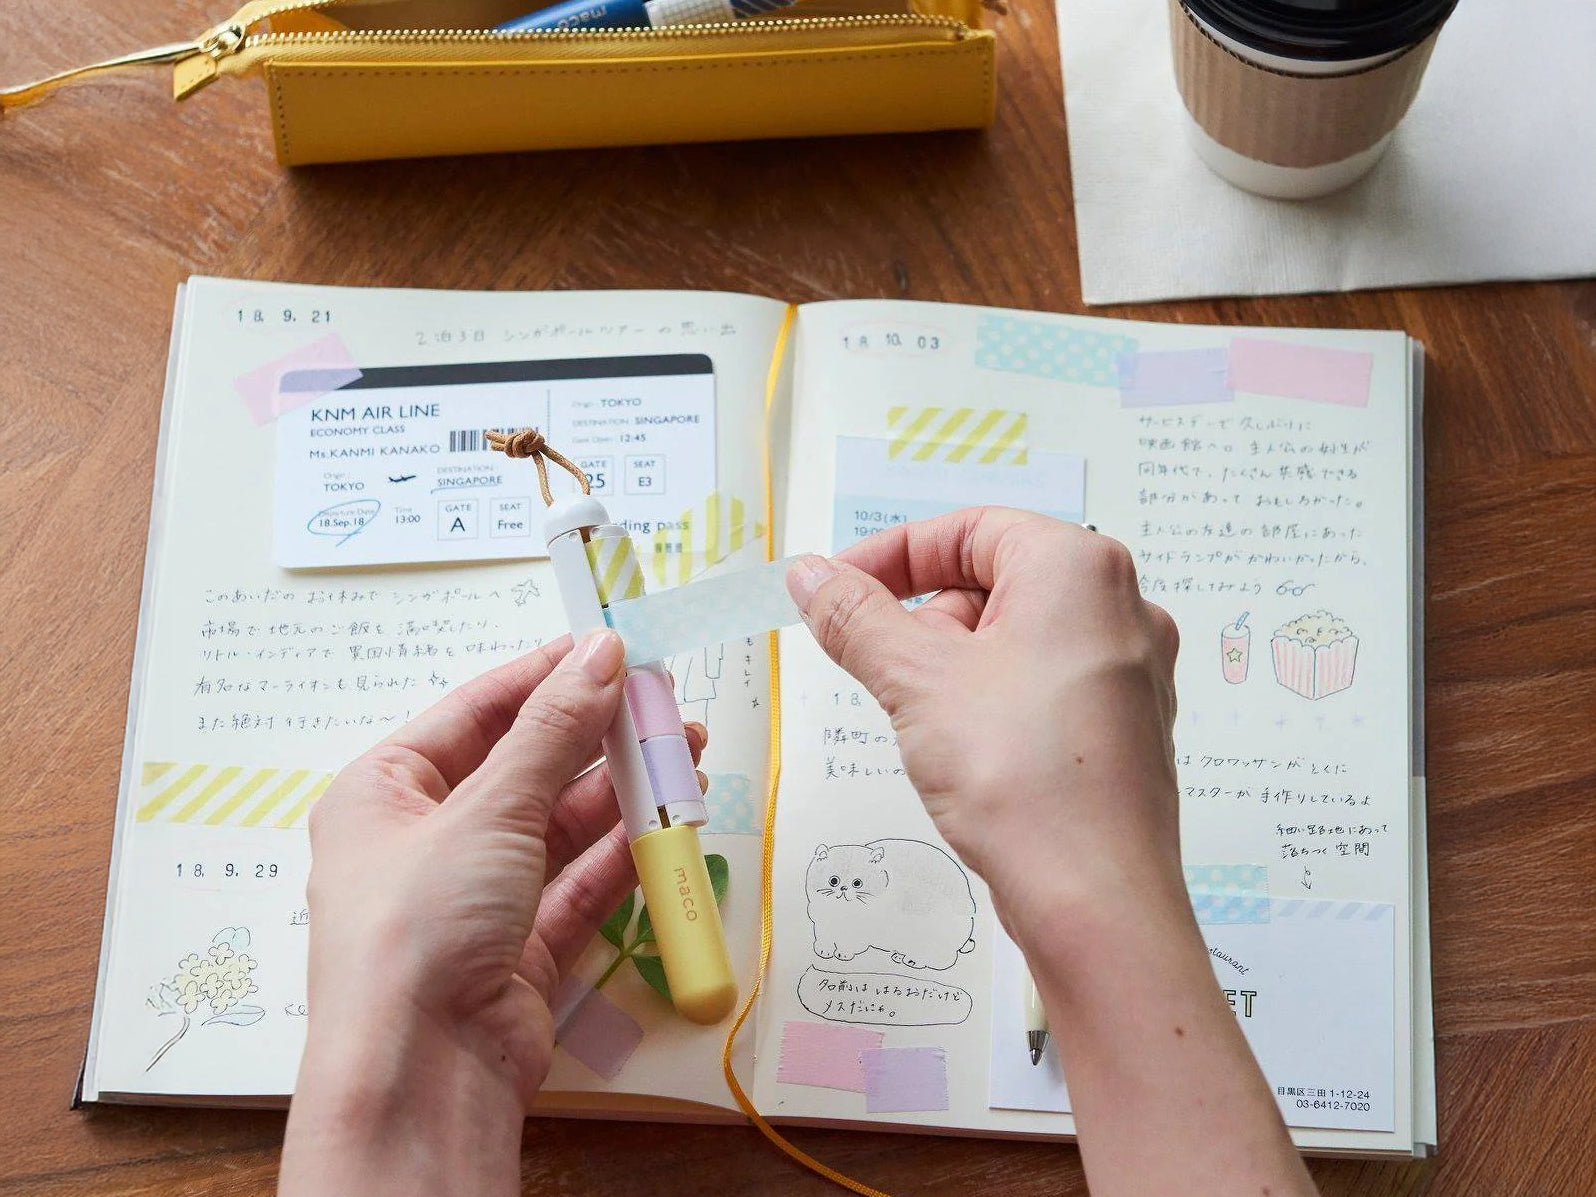 maco
18. 9. 21
2泊3日 シンガポールツアー の思い出
KNM AIR LINE
ECONOMY CLASS
Ms.KANMI KANAKO
Origin :
TOKYO
DESTINATION :
SINGAPORE
Departure Date
18.Sep.18
Time
13:00
GATE
A
SEAT
Free
Origin : TOKYO
DESTINATION : SINGAPORE
12:45
GATE
25
SEAT
E3
ding pass
このあいだの お休みで シンガポールへ
市場で 地元のご飯を 満喫したり、
リトル・インディアで 異国情緒を 味わったり
有名なマーライオンも 見られた
また絶対 行きたいな〜!
もキレイ
18. 9. 29
近
maco
18. 10. 03
サービスデーで 久しぶりに
映画館へ。主人公の女性が
同年代で、たくさん共感できる
部分があって おもしろかった。
主人公の友達の部屋にあった
サイドランプが かわいかったから、
今度探してみよう
10/3(水)
18.
隣町の
美味しいの
は クロワッサンが とくに
マスターが 手作りしているよ
細い路地にあって
落ちつく空間
名前は はるおだけど
メスだにゃ。
staurant
ET
目黒区三田 1-12-24
03-6412-7020